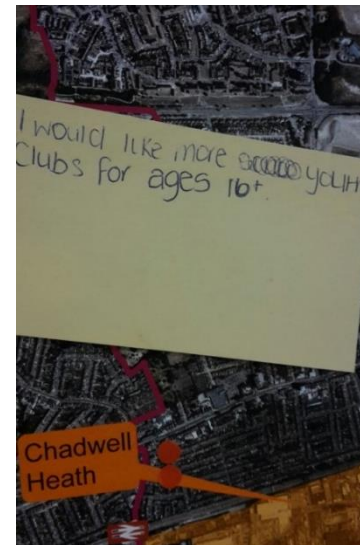 I would like more youth
Clubs for ages 16+
Chadwell
Heath